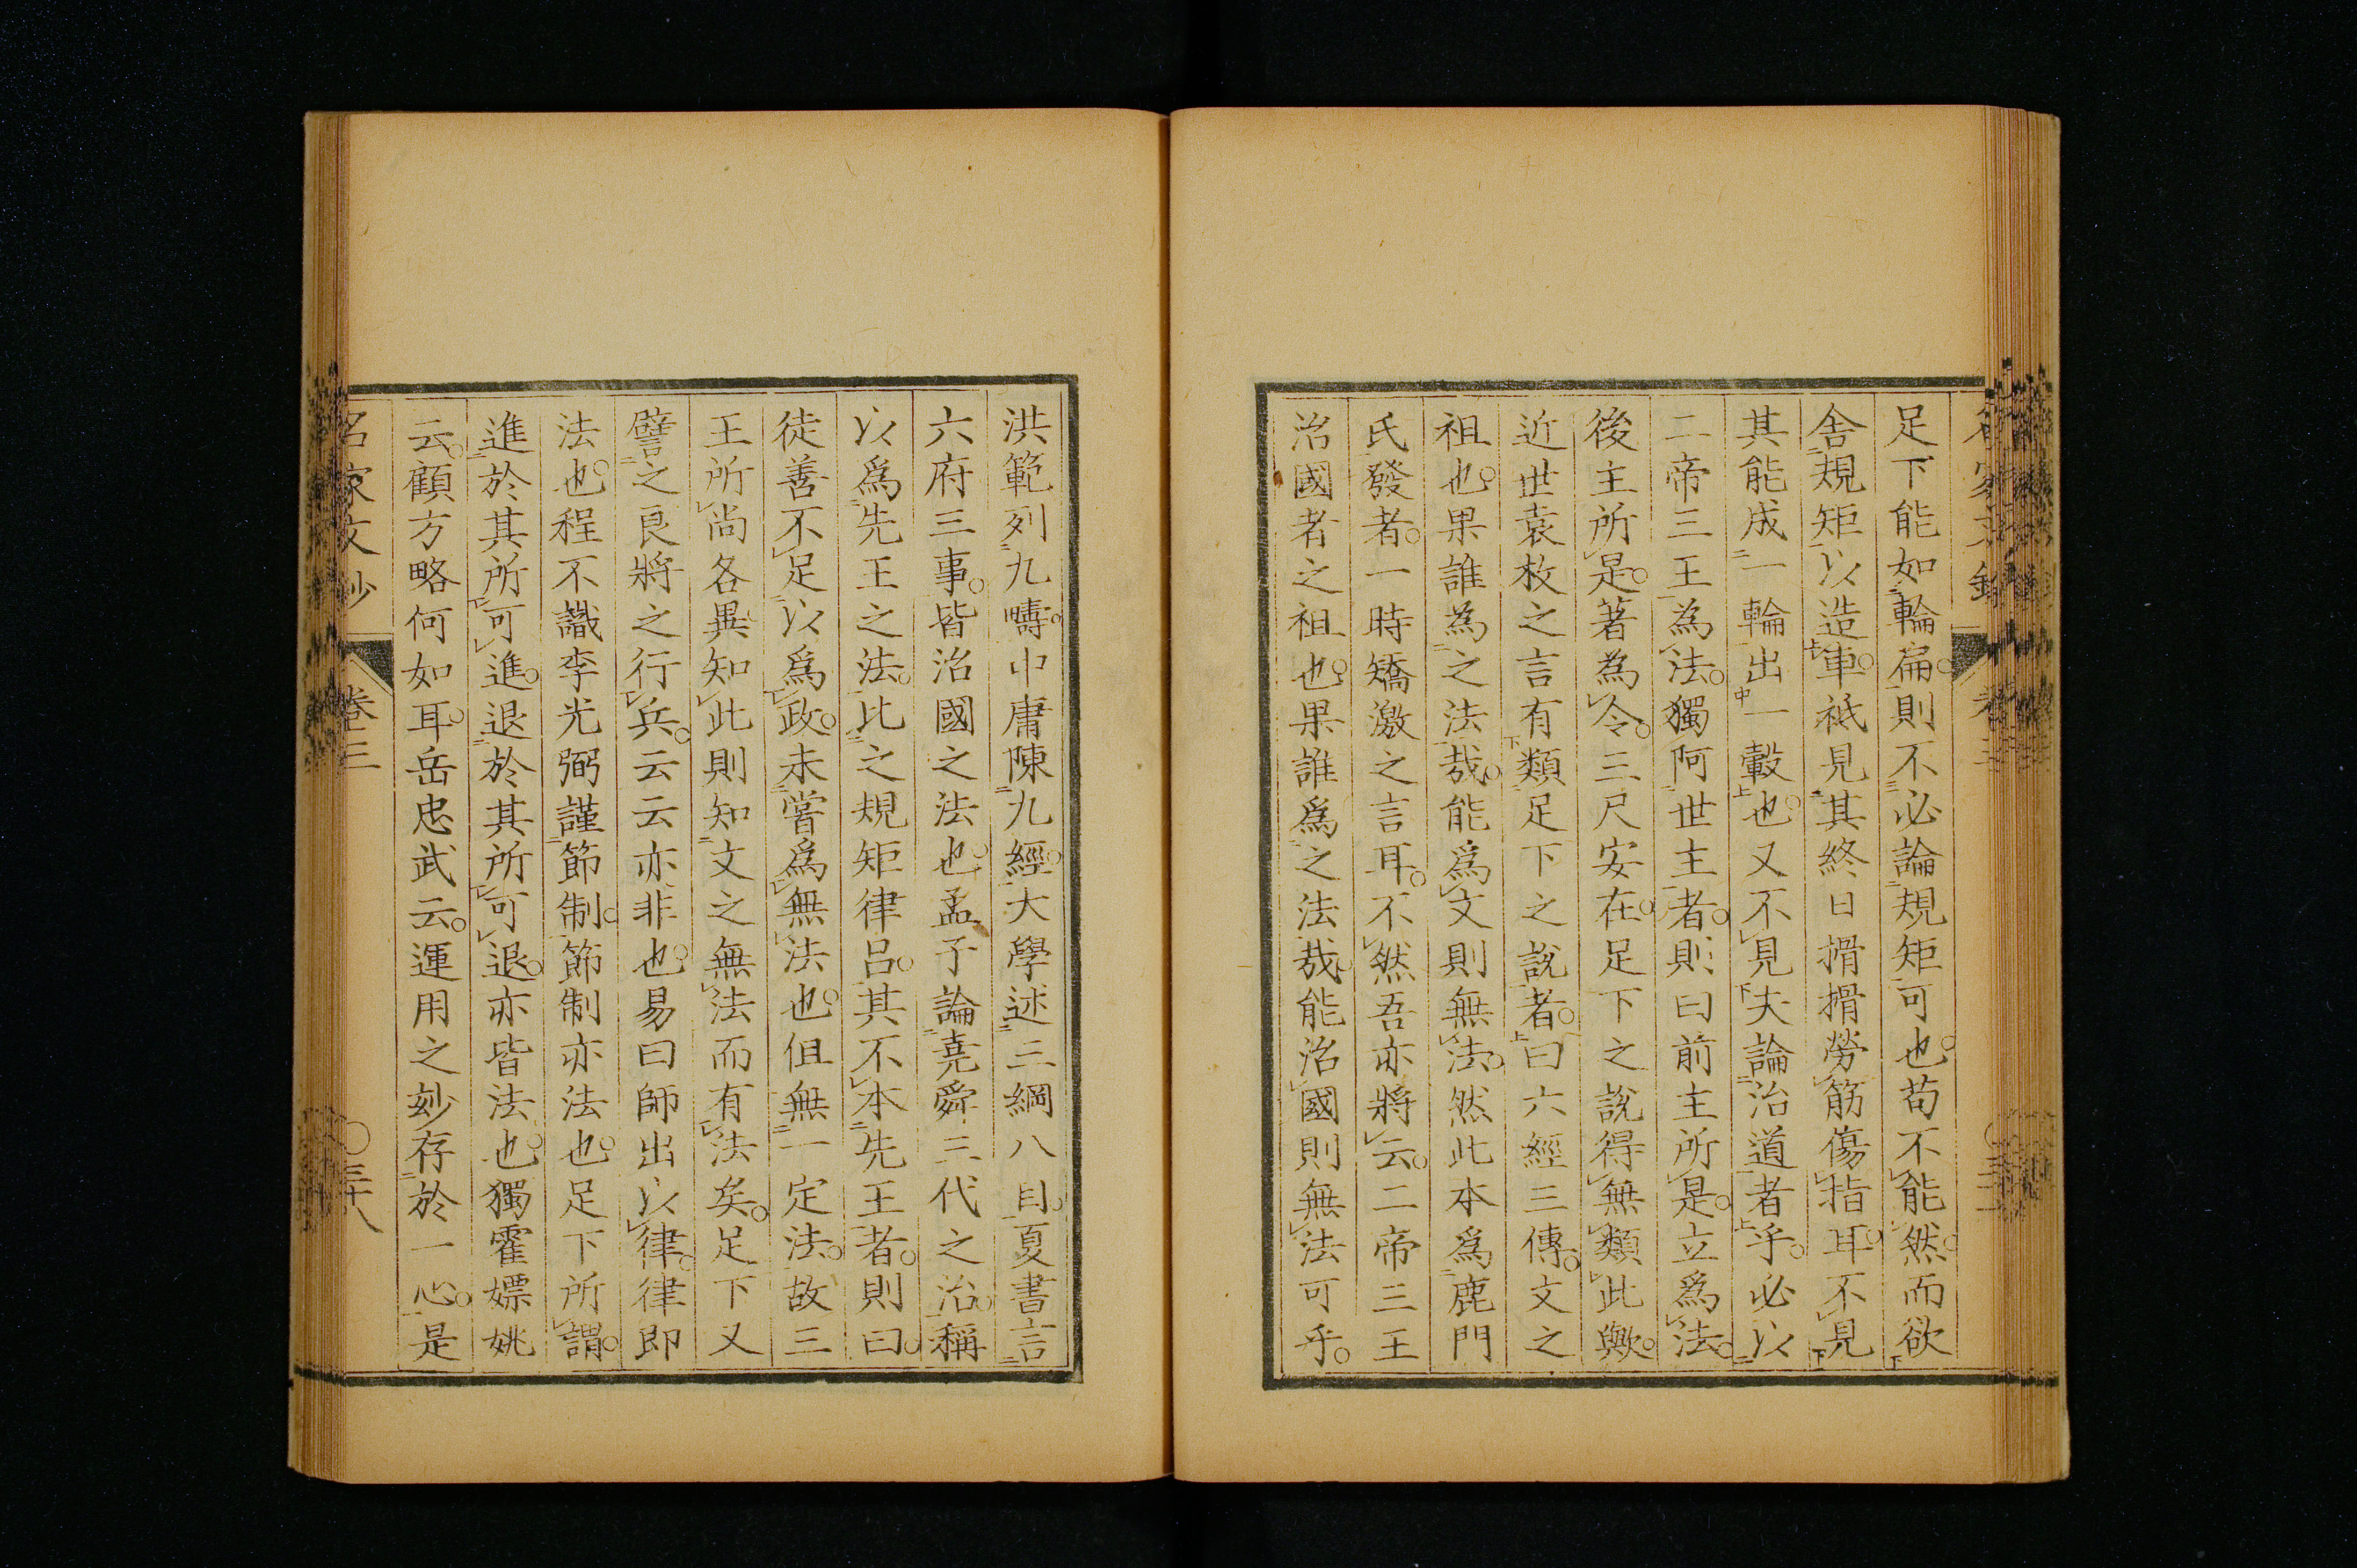 足下能如輪扁則不必論規矩可也苟不能然而欲
舎規矩以造車祇見其終日搰搰勞筋傷指耳不見
其能成一輪出一轂也又不見夫論治道者乎必以
二帝三王為法獨阿世主者則曰前主所是立爲法
後主所是著為令三尺安在足下之說得無類此歟
近世袁枚之言有類足下之說者曰六經三傳文之
祖也果誰為之法哉能爲文則無法然此本爲鹿門
氏發者一時矯激之言耳不然吾亦將云二帝三王
治國者之祖也果誰爲之法哉能治國則無法可乎
洪範列九疇中庸陳九經大學述三綱八目夏書言
六府三事皆治國之法也孟子論堯舜三代之治稱
以爲先王之法比之規矩律呂其不本先王者則曰
徒善不足以爲政未嘗爲無法也但無一定法故三
王所尚各異知此則知文之無法而有法矣足下又
譬之良將之行兵云云亦非也易曰師出以律律即
法也程不識李光弼謹節制節制亦法也足下所謂
進於其所可進退於其所可退亦皆法也獨霍嫖姚
云顧方略何如耳岳忠武云運用之妙存於一心是
名家文抄 卷三 〇三十八